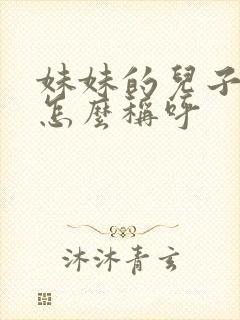 妹妹的兒子
怎麼稱呼
沐沐青玄